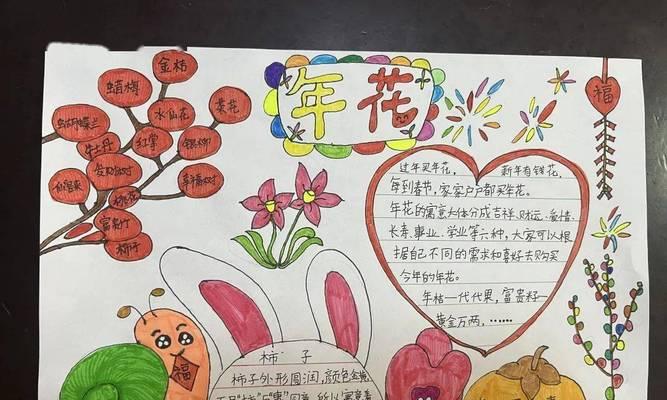 年花
金桔
蜡梅
水仙花
菜花
蝴蝶兰
牡丹
红掌
银柳
发财树
幸福树
仙客来
桃花
富贵竹
柿子
福
过年买年花，新年有钱花，
年到春节，家家户户都买年花。
年花的寓意大体分成吉祥、财运、爱情、
长寿、事业、学业等六种，大家可以根
据自己不同的需求和喜好去购买
今年的年花。
年桔一代代果，富贵籽一
黄金万两，……
福
柿子
柿子外形圆润，颜色金